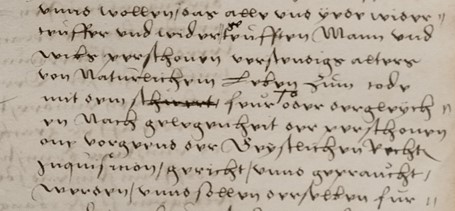 unnd wollen / das alle und yede wider
teuffer und widerteufften Mann und
wibs personen verstendigs alters
von Naturlichem Leben zum tode
mit dem schwert / feur oder dergleych
en Nach gelegenheit der personen
one vorgeend der Geystlichen Rechte
Inquisition / gericht / unnd gepraucht /
werden / unnd sollen derselben fur